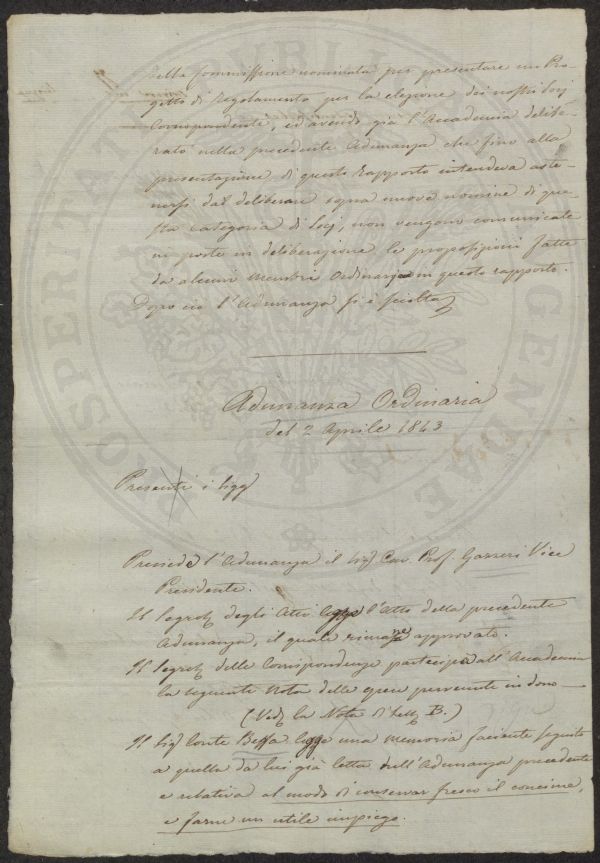 della Commissione nominata per presentare un Pro-
getto di Regolamento per la elezione dei nostri Soci
Corrispondenti, ed avendo già l'Accademia delibe-
rato nella precedente Adunanza che fino alla
presentazione di questo Rapporto intendeva aste-
nersi dal deliberare sopra nuove nomine di que-
sta Categoria di Socj, non vengono comunicate
ne poste in deliberazione le proposizioni fatte
da alcuni Membri Ordinarj in questo rapporto.
Dopo ciò l'Adunanza si è sciolta
Adunanza Ordinaria
del 2 Aprile 1843
Presenti i Sigg
Presiede l'Adunanza il Sigr Cav. Prof. Gazzeri Vice
Presidente.
Il Segrot degli Atti legge l'Atto della precedente
Adunanza, il quale rimane approvato.
Il Segrot delle Corrispondenze partecipa all'Accademia
la seguente Nota delle opere pervenute in dono
(Ved la Nota di Lett B.)
Il Sigr Conte Beffa legge una memoria faciente seguito
a quella da lui già letta nell'Adunanza precedente
e relativa al modo di conservar fresco il concime,
e farne un utile impiego.
PROSPERITATI PVBLICAE AVGENDAE